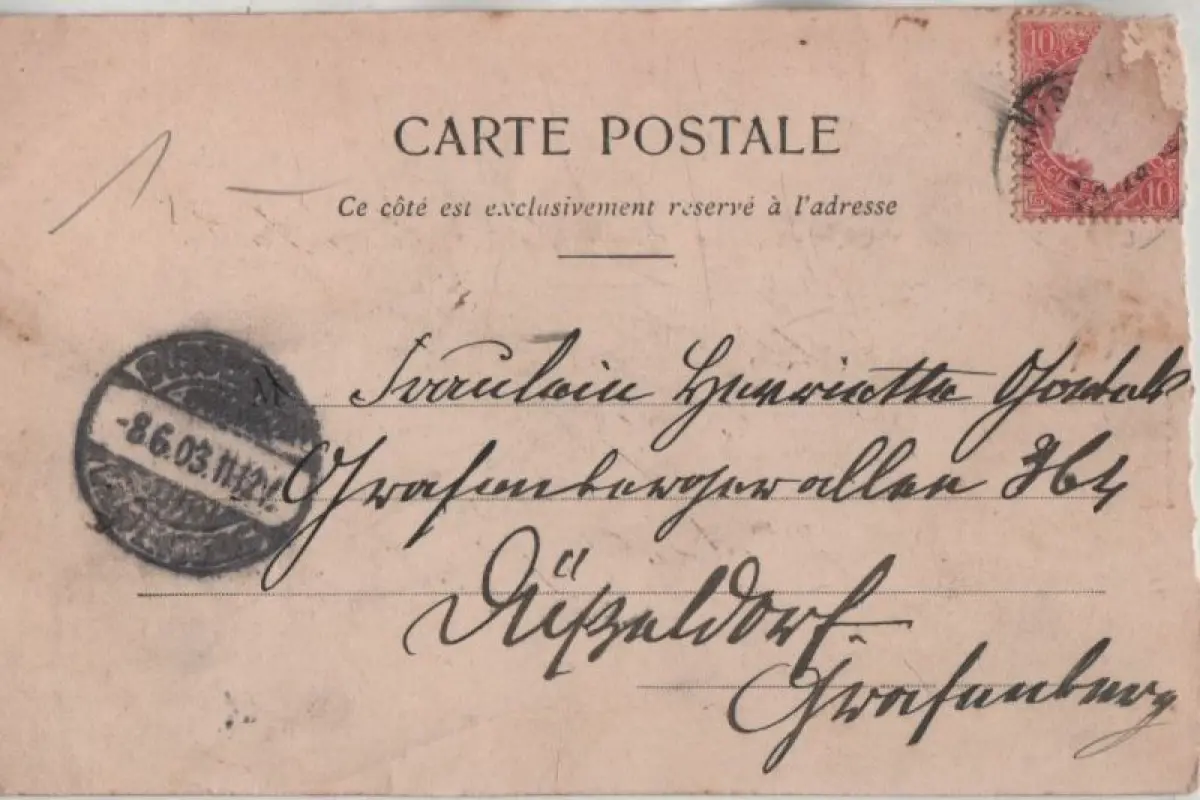 10
CARTE POSTALE
Ce côté est exclusivement reservé à l'adresse
10
M
Fräulein Henriette
-8.6.03.11-12V.
Grafenbergerallee
Düßeldorf
Grafenberg